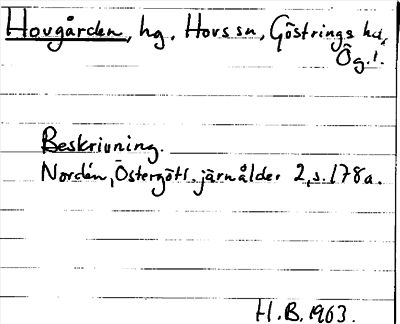 Hovgården, hg. Hovs sn, Göstrings hd,
Ög.l.
Beskrivning.
Nordén, Östergötl. järnålder 2, s. 178a.
H.B. 1963.